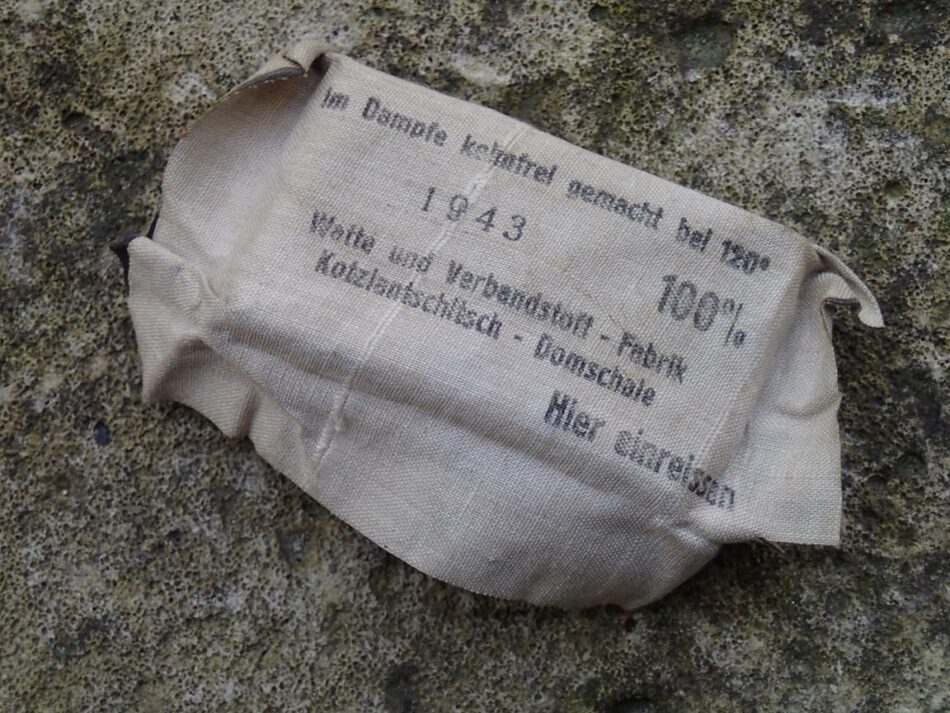 Im Dampfe keimfrei gemacht bei 120°
1943
100%
Watte und Verbandstoff - Fabrik
Kotzlantschitsch - Domschale
Hier einreissen